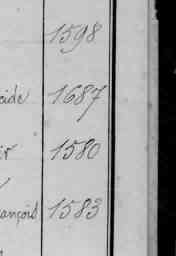 1598
cide 1687
ir 1580
ançois 1583